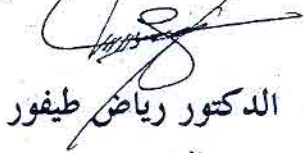 الدكتور رياض طيفور